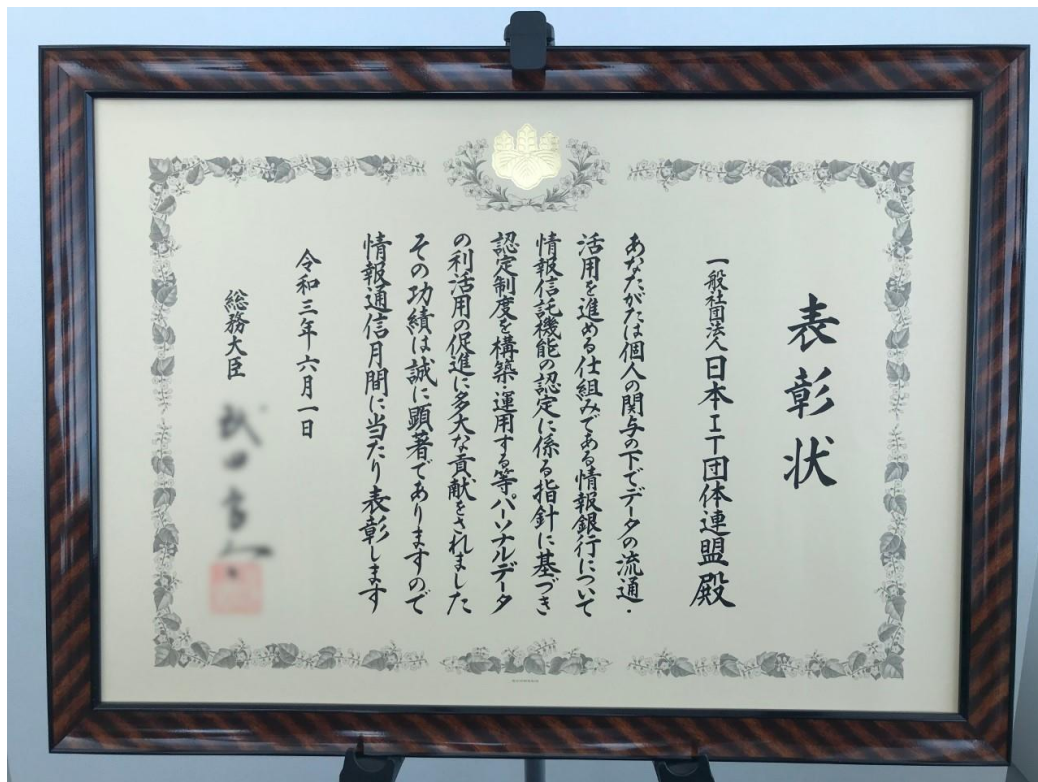 表彰状
一般社団法人日本IT団体連盟殿
あなたがたは個人の関与の下でデータの流通・
活用を進める仕組みである情報銀行について
情報信託機能の認定に係る指針に基づき
認定制度を構築・運用する等パーソナルデータ
の利活用の促進に多大な貢献をされました
その功績は誠に顕著でありますので
情報通信月間に当たり表彰します
令和三年六月一日
総務大臣